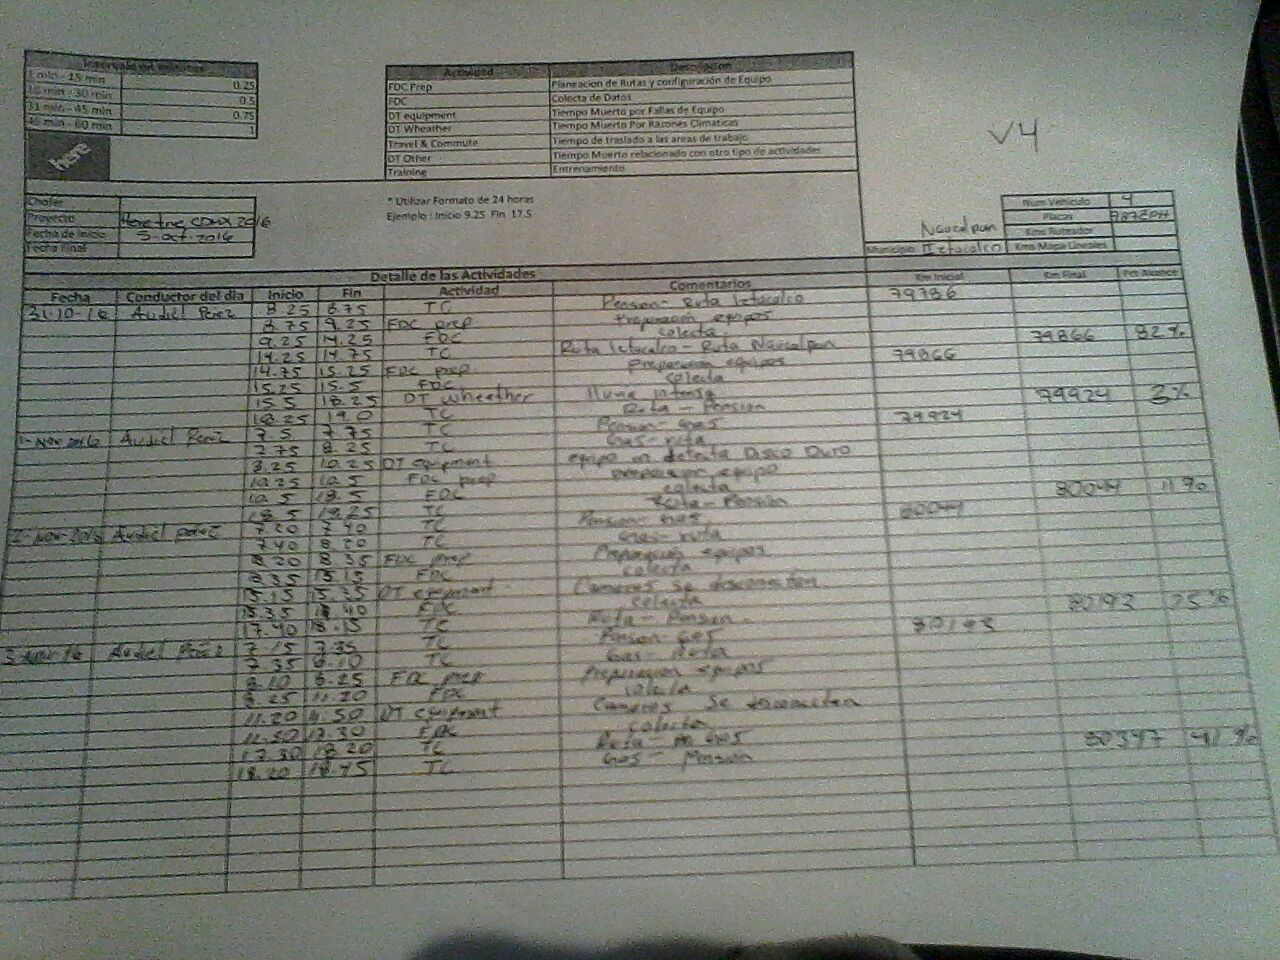 Intervalo en minutos
1 min - 15 min 0.25
16 min - 30 min 0.5
31 min - 45 min 0.75
46 min - 60 min 1
here
Actividad Descripcion
FDC Prep Planeacion de Rutas y configuración de Equipo
FDC Colecta de Datos
DT equipment Tiempo Muerto por Fallas de Equipo
DT Wheather Tiempo Muerto Por Razones Climaticas
Travel & Commute Tiempo de traslado a las areas de trabajo
DT Other Tiempo Muerto relacionado con otro tipo de actividades
Training Entrenamiento
V4
* Utilizar Formato de 24 horas
Ejemplo : Inicio 9.25 Fin 17.5
Chofer
Proyecto CDMX 2016
Fecha de Inicio 3-oct-2016
Fecha Final
Num Vehiculo 4
Placas
Kms Ruteador
Kms Mapa Lineales
Naucalpan
Municipio Iztacalco
Detalle de las Actividades
Fecha Conductor del dia Inicio Fin Actividad Comentarios Km Inicial Km Final Pct Avance
31-10-16 Audiel Perez 8.25 8.75 TC Pension- Ruta Iztacalco 79736
8.75 9.25 FDC prep Preparación equipos
9.25 14.25 FDC colecta 79866 82%
14.25 14.75 TC Ruta Iztacalco - Ruta Naucalpan 79866
14.75 15.25 FDC prep Preparación equipos
15.25 15.5 FDC colecta
15.5 18.25 DT wheather lluvia intensa 79924 3%
18.25 19.0 TC Ruta - Pension
1-Nov-2016 Audiel Perez 7.5 7.75 TC Pension- Gas 79924
7.75 8.25 TC Gas- ruta
8.25 10.25 DT equipment equipo no detecta Disco Duro
10.25 10.5 FDC prep equipo
10.5 18.5 FDC colecta 80044 11%
18.5 19.25 TC Ruta - Pension
2-Nov-2016 Audiel perez 7.20 7.40 TC Pension- Gas 80044
7.40 8.20 TC Gas- ruta
8.20 8.35 FDC prep Preparación equipos
8.35 15.15 FDC colecta
15.15 15.35 DT equipment Camaras se desconectan
15.35 40 FDC colecta 80193 25%
17.40 18.15 TC Ruta - Pension.
3-Nov-16 Audiel Perez 7.15 7.35 TC Pension Gas 80193
7.35 8.10 TC Gas - Ruta
8.10 8.25 FDC prep Preparacion equipos
8.25 11.20 FDC colecta
11.20 .50 DT equipment Camaras Se desconectan
11.50 17.30 FDC colecta
17.30 18.20 TC Ruta - Gas 80347 41%
18.20 18.45 TC Gas - Pension